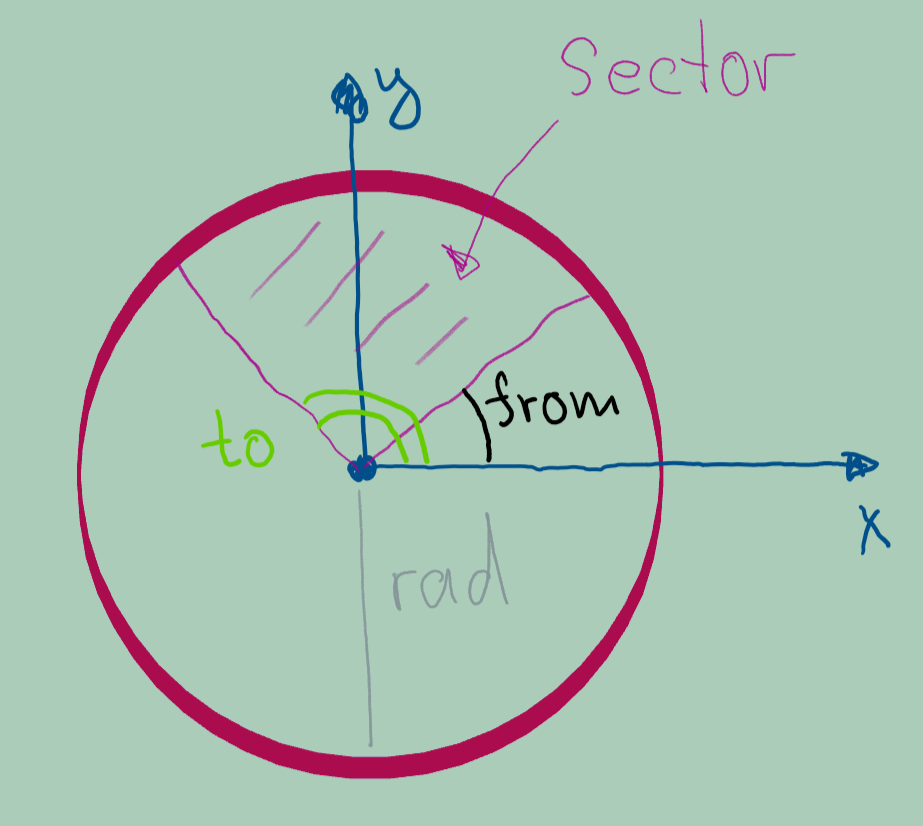 Sector
y
from
to
x
rad